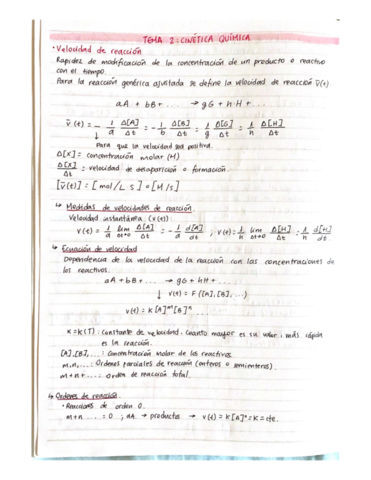 TEMA 2: CINÉTICA QUÍMICA
• Velocidad de reacción
Rapidez de modificación de la concentración de un producto o reactivo
con el tiempo.
Para la reacción genérica ajustada se define la velocidad de reacción v̄(t):
aA + bB + ... → gG + hH + ...
v̄(t) = - 1/a Δ[A]/Δt = - 1/b Δ[B]/Δt = 1/g Δ[G]/Δt = 1/h Δ[H]/Δt
↓ Para que la velocidad sea positiva.
Δ[X] = concentración molar (M)
Δ[X]/Δt = velocidad de desaparición o formación.
[v̄(t)] = [mol/L s] o [M/s]
↳ Medidas de velocidades de reacción.
Velocidad instantánea (v(t)):
v(t) = - 1/a lim Δt→0 Δ[A]/Δt = - 1/a d[A]/dt ; v(t) = 1/h lim Δt→0 Δ[H]/Δt = 1/h d[H]/dt
↳ Ecuación de velocidad
Dependencia de la velocidad de la reacción con las concentraciones de
los reactivos.
aA + bB + ... → gG + hH + ...
↓ v(t) = F([A],[B],...)
v(t) = K[A]ᵐ[B]ⁿ ...
K = K(T): constante de velocidad. Cuanto mayor es su valor: más rápida
es la reacción.
[A],[B],...: concentración molar de los reactivos.
m,n,...: Ordenes parciales de reacción (enteros o semienteros).
m+n+...: Orden de reacción total.
↳ Ordenes de reacción.
• Reacciones de orden 0.
m+n ... = 0 ; aA → productos → v(t) = K[A]⁰ = K = cte.